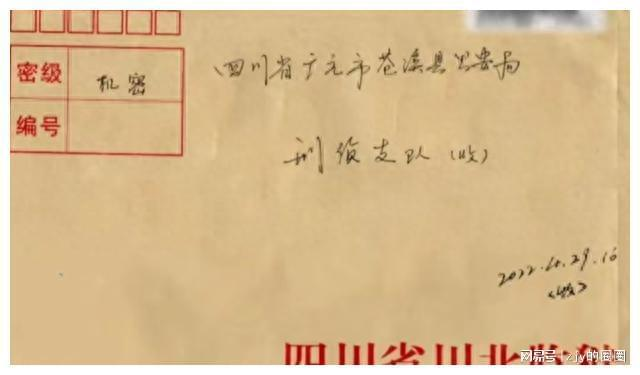 密级 机密
编号
四川省广元市苍溪县公安局
刑侦支队（收）
2022.4.29.16
四川省川北监狱
网易号 | zjy的圈圈